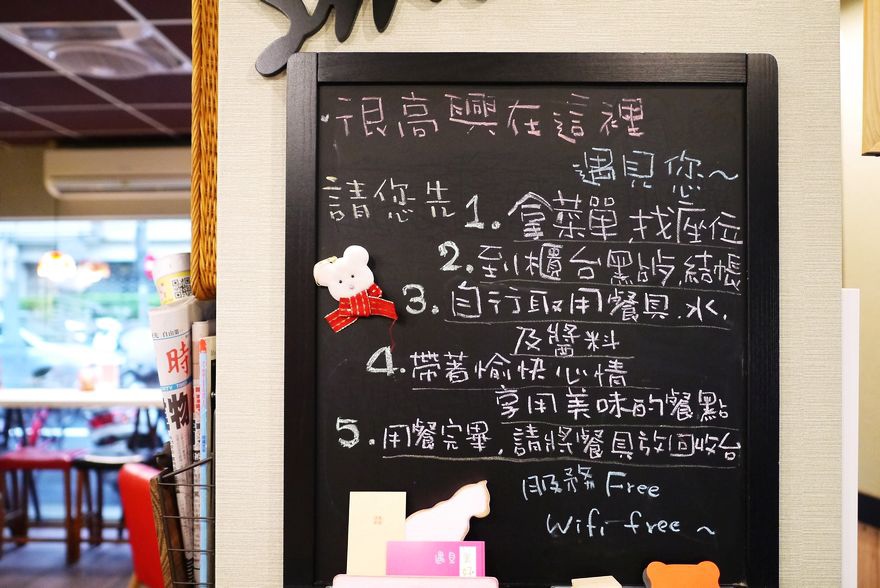 很高興在這裡
遇見您~
請您先 1. 拿菜單,找座位
2. 到櫃台點餐,結帳
3. 自行取用餐具.水.
及醬料
4. 帶著愉快心情
享用美味的餐點
5. 用餐完畢,請將餐具放回收台
服務 Free
Wifi-free~
時
物
遇見